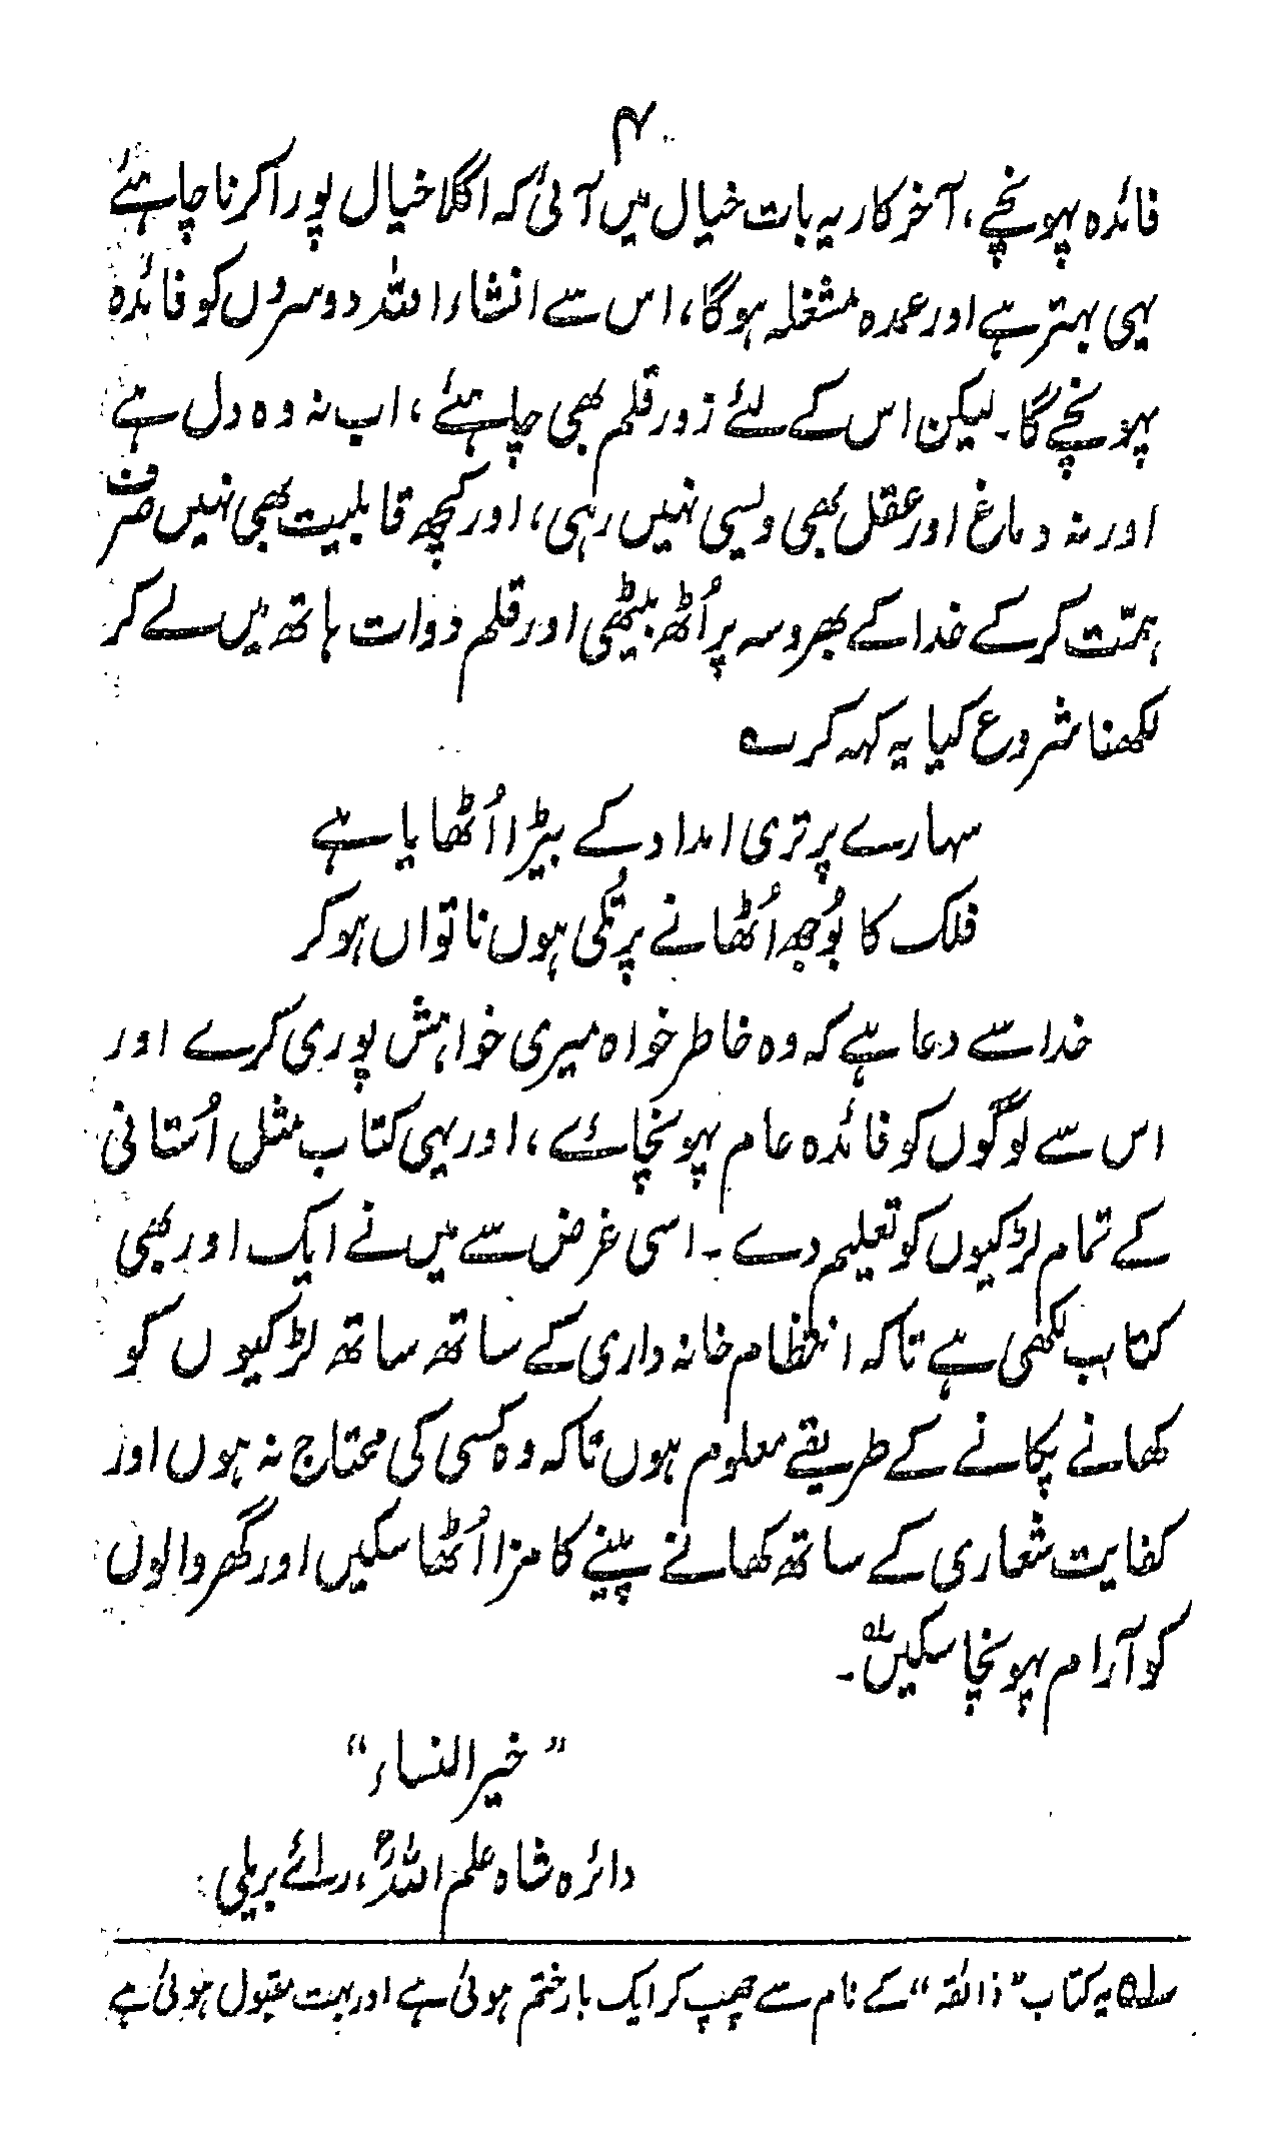 ۴
فائدہ پہونچے، آخر کار یہ بات خیال میں آئی کہ اگلا خیال پورا کرنا چاہئے
یہی بہتر ہے اور عمدہ مشغلہ ہوگا، اس سے انشاء اللہ دوسروں کو فائدہ
پہونچے گا۔ لیکن اس کے لئے زور قلم بھی چاہئے، اب نہ وہ دل ہے
اور نہ دماغ اور عقل بھی ویسی نہیں رہی، اور کچھ قابلیت بھی نہیں صرف
ہمّت کر کے خدا کے بھروسہ پر اُٹھ بیٹھی اور قلم دوات ہاتھ میں لے کر
لکھنا شروع کیا یہ کہہ کر ؎
سہارے پر تری امداد کے بیڑا اُٹھایا ہے
فلک کا بُوجھ اُٹھانے پر تُلی ہوں ناتواں ہو کر
خدا سے دعا ہے کہ وہ خاطر خواہ میری خواہش پوری کرے اور
اس سے لوگوں کو فائدہ عام پہونچائے، اور یہی کتاب مثل اُستانی
کے تمام لڑکیوں کو تعلیم دے۔ اسی غرض سے میں نے ایک اور بھی
کتاب لکھی ہے تاکہ انتظام خانہ داری کے ساتھ ساتھ لڑکیوں کو
کھانے پکانے کے طریقے معلوم ہوں تاکہ وہ کسی کی محتاج نہ ہوں اور
کفایت شعاری کے ساتھ کھانے پینے کا مزا اُٹھا سکیں اور گھر والوں
کو آرام پہونچا سکیں لہ۔
"خیر النساء"
دائرہ شاہ علم اللہؒ، رائے بریلی
لہ یہ کتاب "ذائقہ" کے نام سے چھپ کر ایک بار ختم ہوئی ہے اور بہت مقبول ہوئی ہے